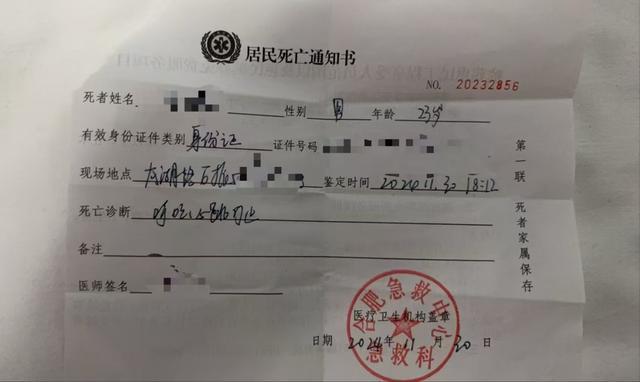 居民死亡通知书
NO. 20232856
死者姓名 性别 男 年龄 23岁
有效身份证件类别 身份证 证件号码
现场地点 鉴定时间 2024.11.30 18:12
死亡诊断 呼吸心跳停止
备注
医师签名
医疗卫生机构盖章
日期 2024年11月30日
第一联 死者家属保存
合肥急救中心
急救科